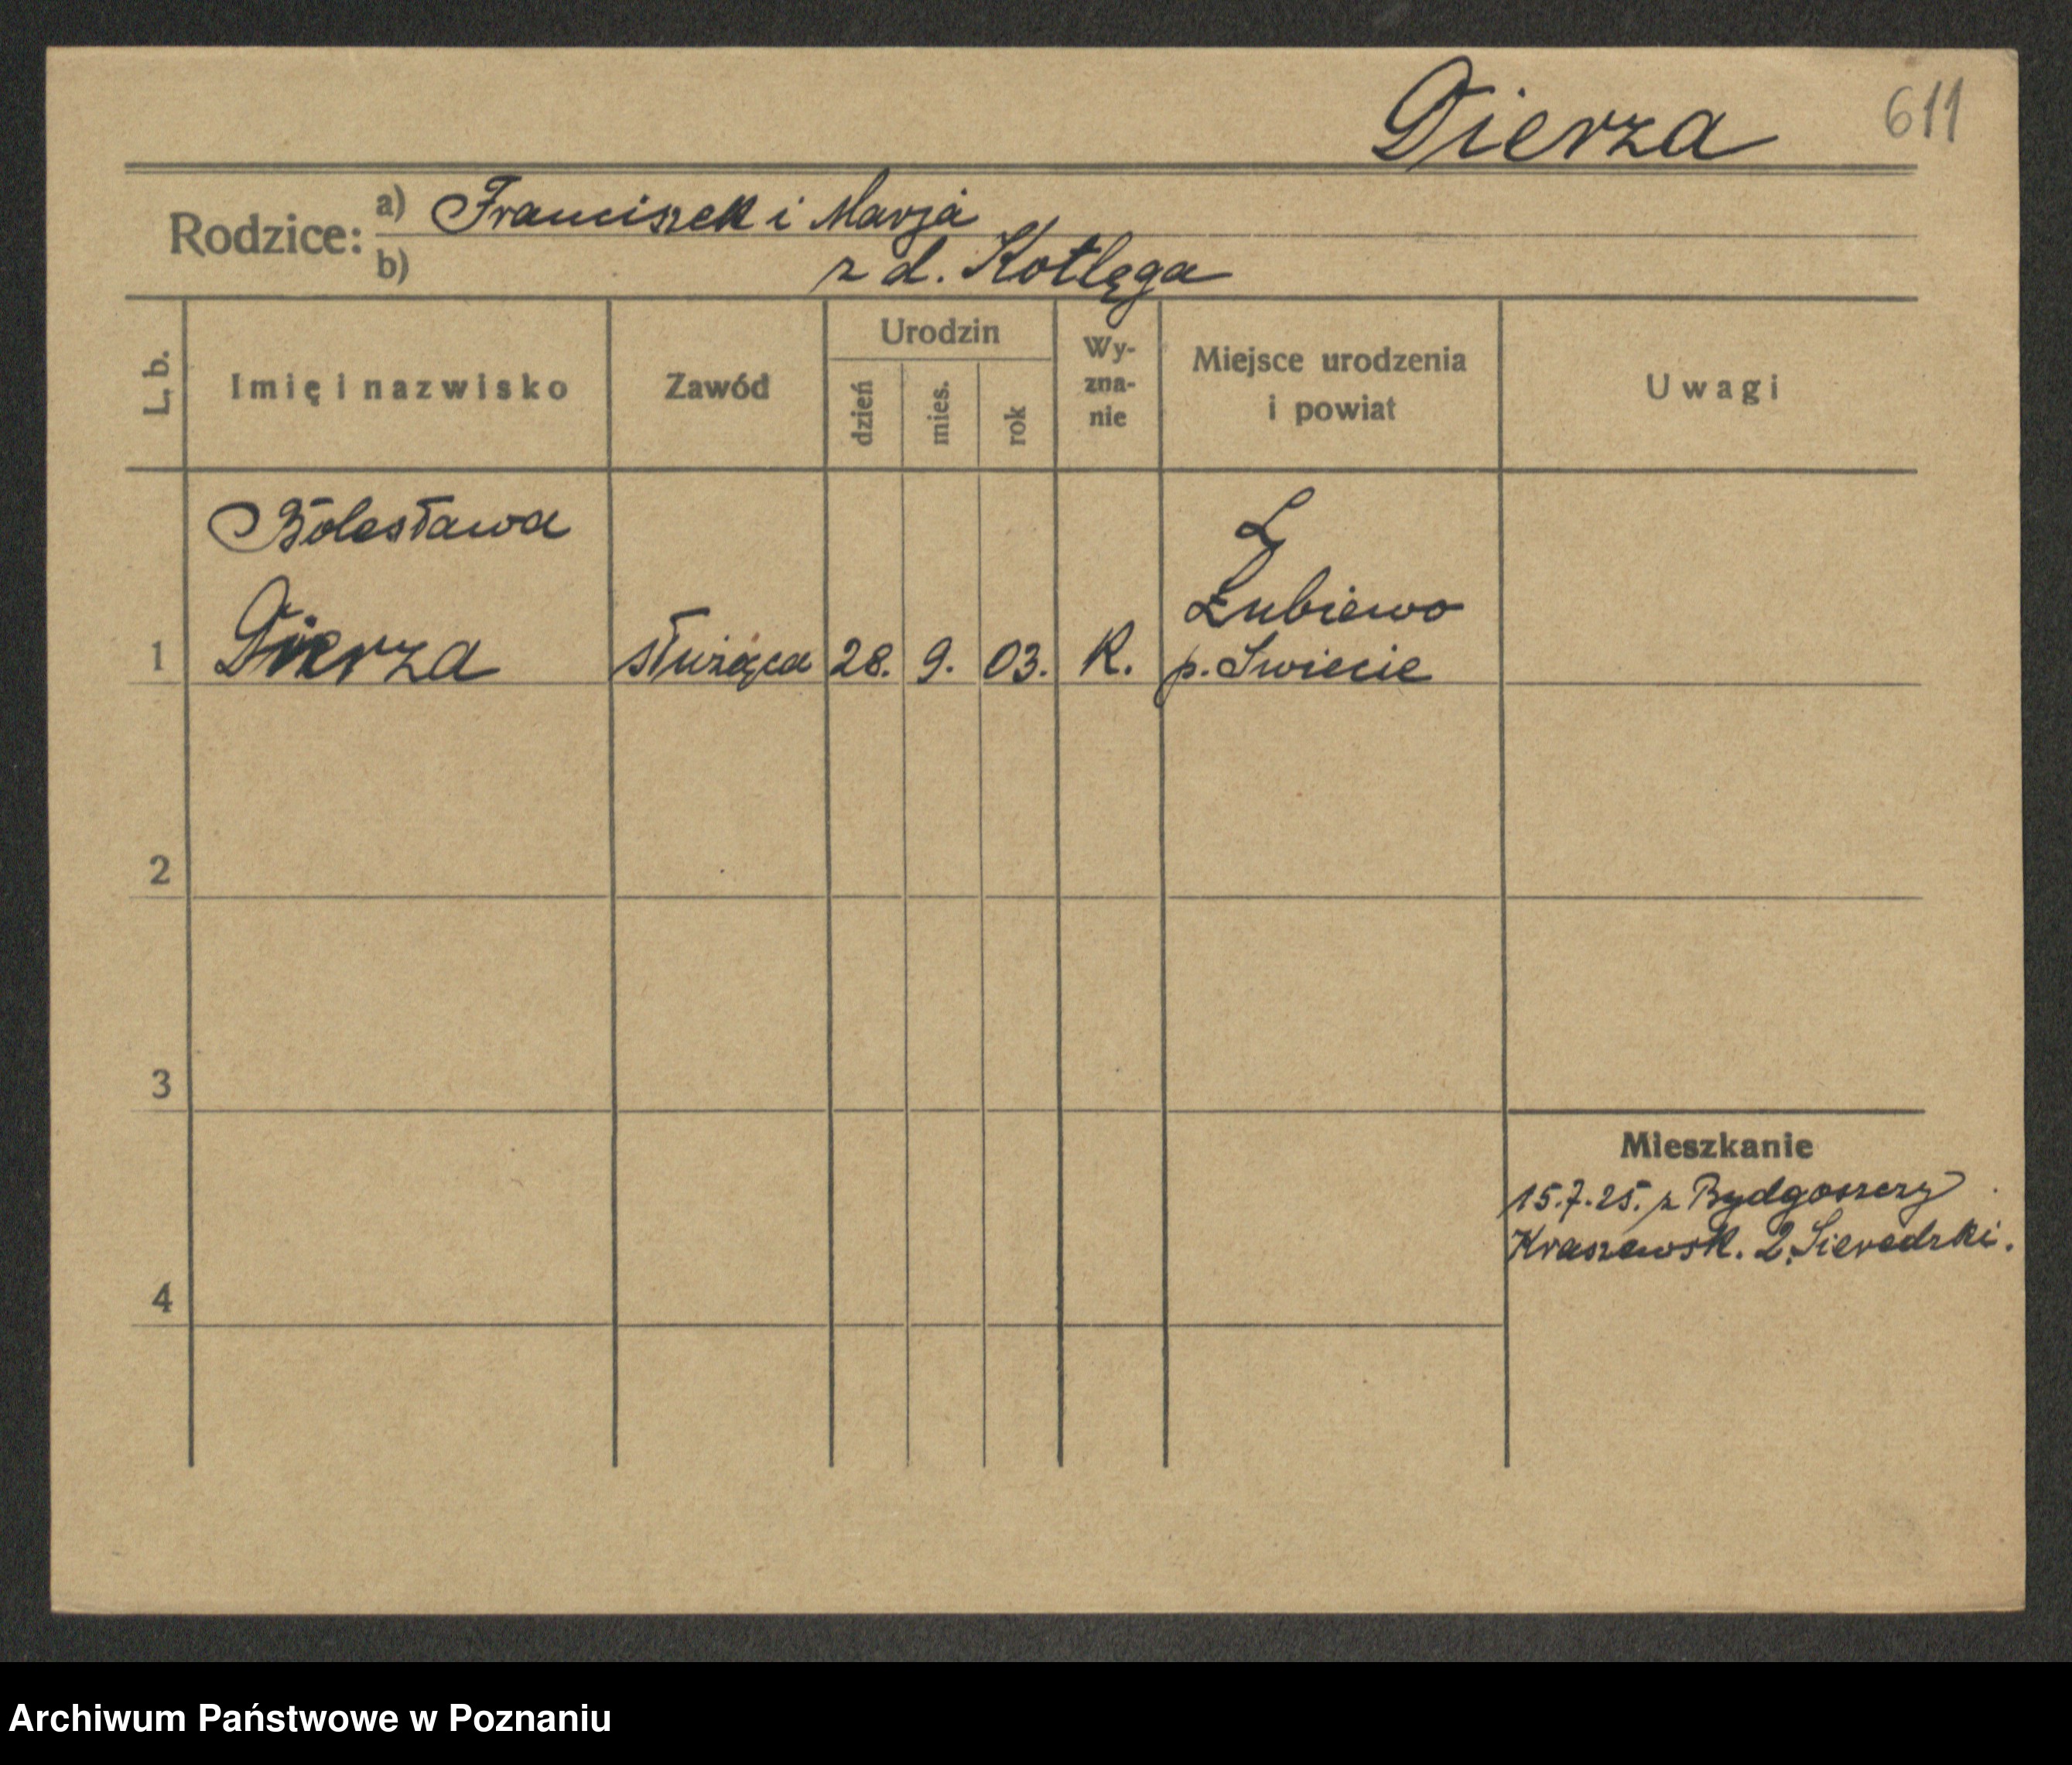 Dierza 611
Rodzice: a) Franciszek i Marja
b) z d. Kotlęga
L. b. Imię i nazwisko Zawód Urodzin dzień mies. rok Wy-zna-nie Miejsce urodzenia i powiat Uwagi
Bolesława L
Łubiewo
1 Dierza służąca 28. 9. 03. K. p. Swiecie
2
3
Mieszkanie
15.7.25. z Bydgoszczy
Kraszewsk. 2. Sieredzki.
4
Archiwum Państwowe w Poznaniu